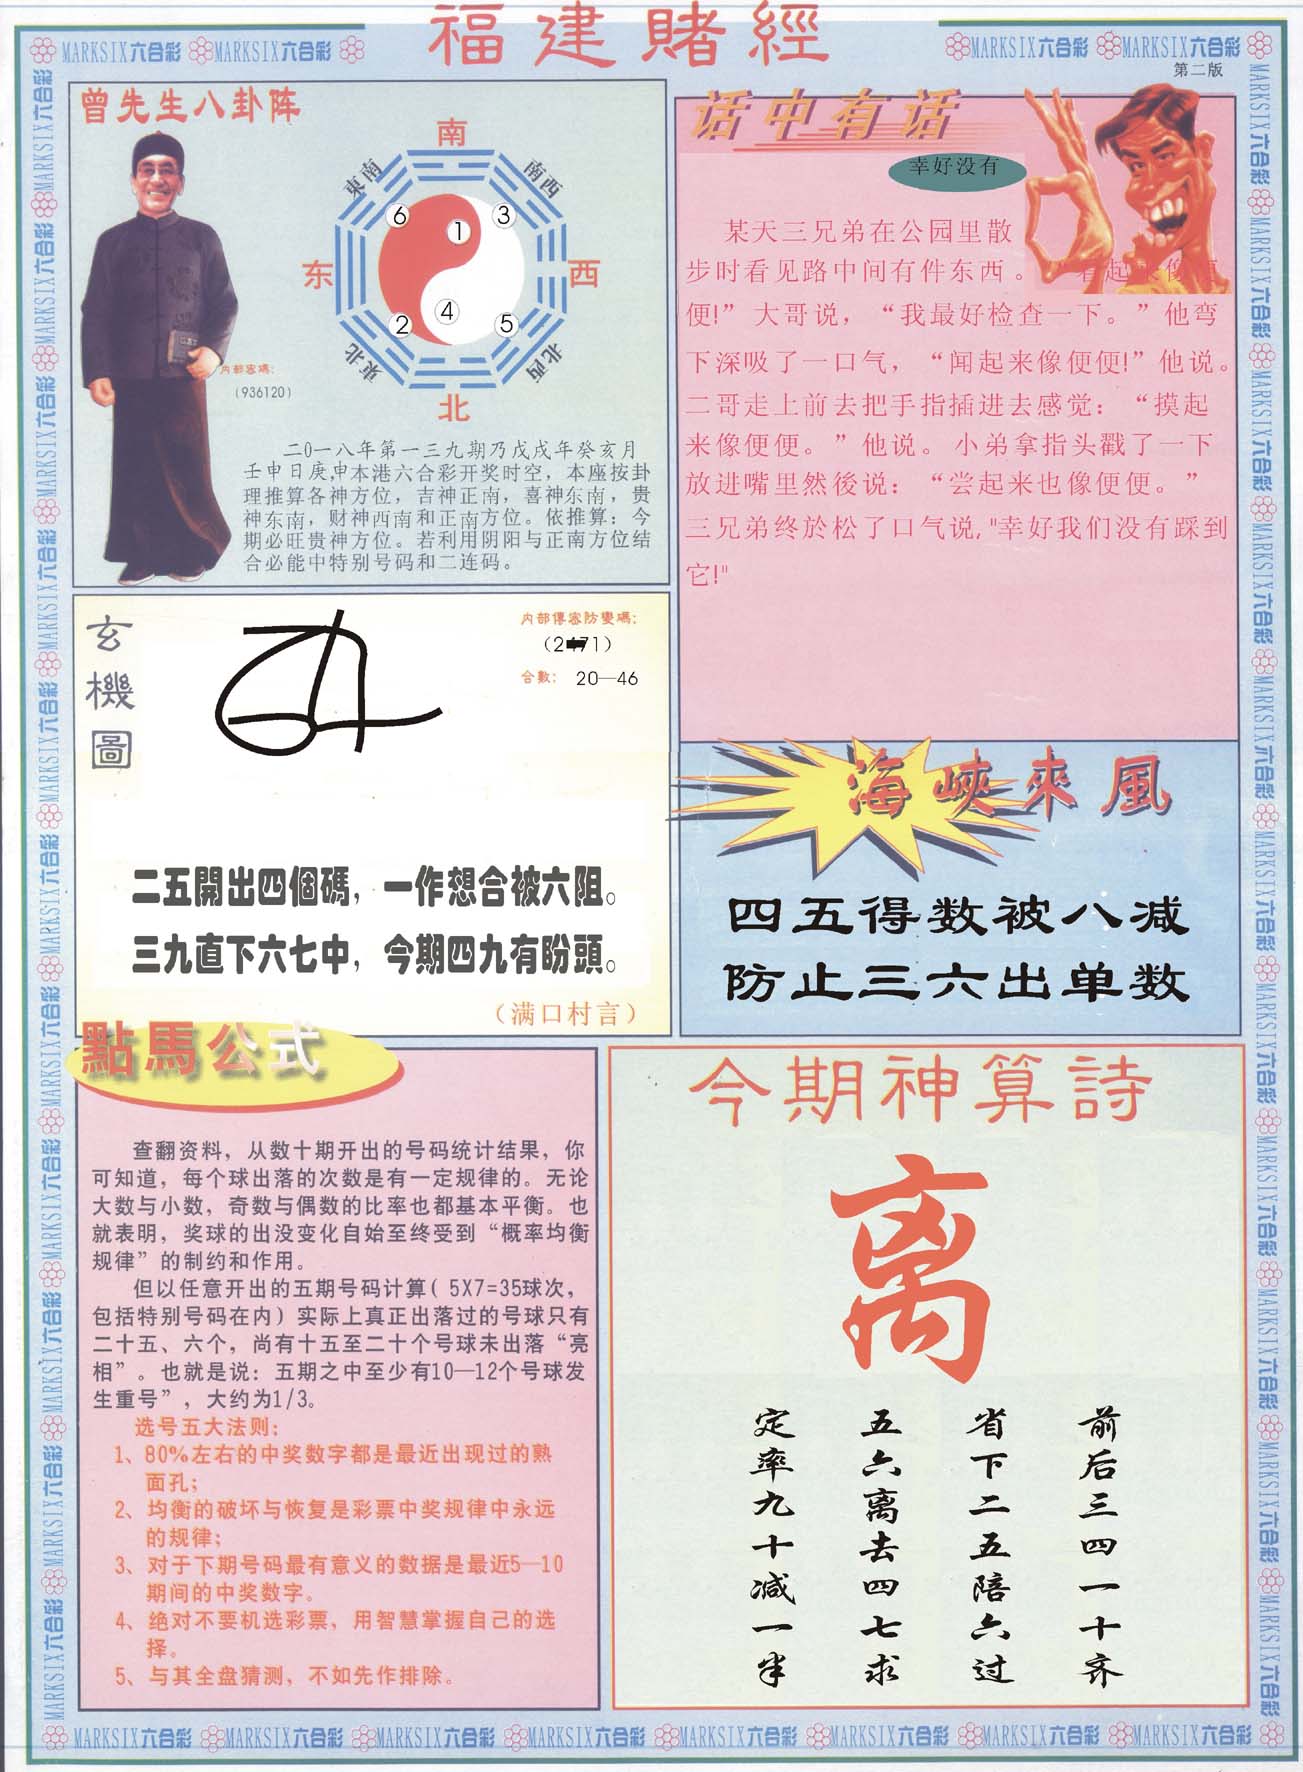 福建賭經
MARKSIX六合彩 MARKSIX六合彩
MARKSIX六合彩 MARKSIX六合彩
第二版
曾先生八卦阵
南
東南
南西
6
1
3
东
西
2
4
5
東北
北西
北
内部密碼：
（936120）
二○一八年第一三九期乃戊戌年癸亥月
壬申日庚,申本港六合彩开奖时空，本座按卦
理推算各神方位，吉神正南，喜神东南，贵
神东南，财神西南和正南方位。依推算：今
期必旺贵神方位。若利用阴阳与正南方位结
合必能中特别号码和二连码。
话中有话
幸好没有
某天三兄弟在公园里散
步时看见路中间有件东西。“看起来像便
便!”大哥说，“我最好检查一下。”他弯
下深吸了一口气，“闻起来像便便!”他说。
二哥走上前去把手指插进去感觉：“摸起
来像便便。”他说。小弟拿指头戳了一下
放进嘴里然後说：“尝起来也像便便。”
三兄弟终於松了口气说,"幸好我们没有踩到
它!"
玄機圖
内部傳密防變碼：
合數： 20—46
二五開出四個碼，一作想合被六阻。
三九直下六七中，今期四九有盼頭。
（满口村言）
海峽來風
四五得数被八减
防止三六出单数
點馬公式
查翻资料，从数十期开出的号码统计结果，你
可知道，每个球出落的次数是有一定规律的。无论
大数与小数，奇数与偶数的比率也都基本平衡。也
就表明，奖球的出没变化自始至终受到“概率均衡
规律”的制约和作用。
但以任意开出的五期号码计算（5X7=35球次，
包括特别号码在内）实际上真正出落过的号球只有
二十五、六个，尚有十五至二十个号球未出落“亮
相”。也就是说：五期之中至少有10—12个号球发
生重号”，大约为1/3。
选号五大法则：
1、80%左右的中奖数字都是最近出现过的熟
面孔；
2、均衡的破坏与恢复是彩票中奖规律中永远
的规律；
3、对于下期号码最有意义的数据是最近5—10
期间的中奖数字。
4、绝对不要机选彩票，用智慧掌握自己的选
择。
5、与其全盘猜测，不如先作排除。
今期神算詩
离
前后三四一十齐
省下二五陪六过
五六离去四七求
定率九十减一半
MARKSIX六合彩 MARKSIX六合彩 MARKSIX六合彩 MARKSIX六合彩 MARKSIX六合彩 MARKSIX六合彩 MARKSIX六合彩 MARKSIX六合彩